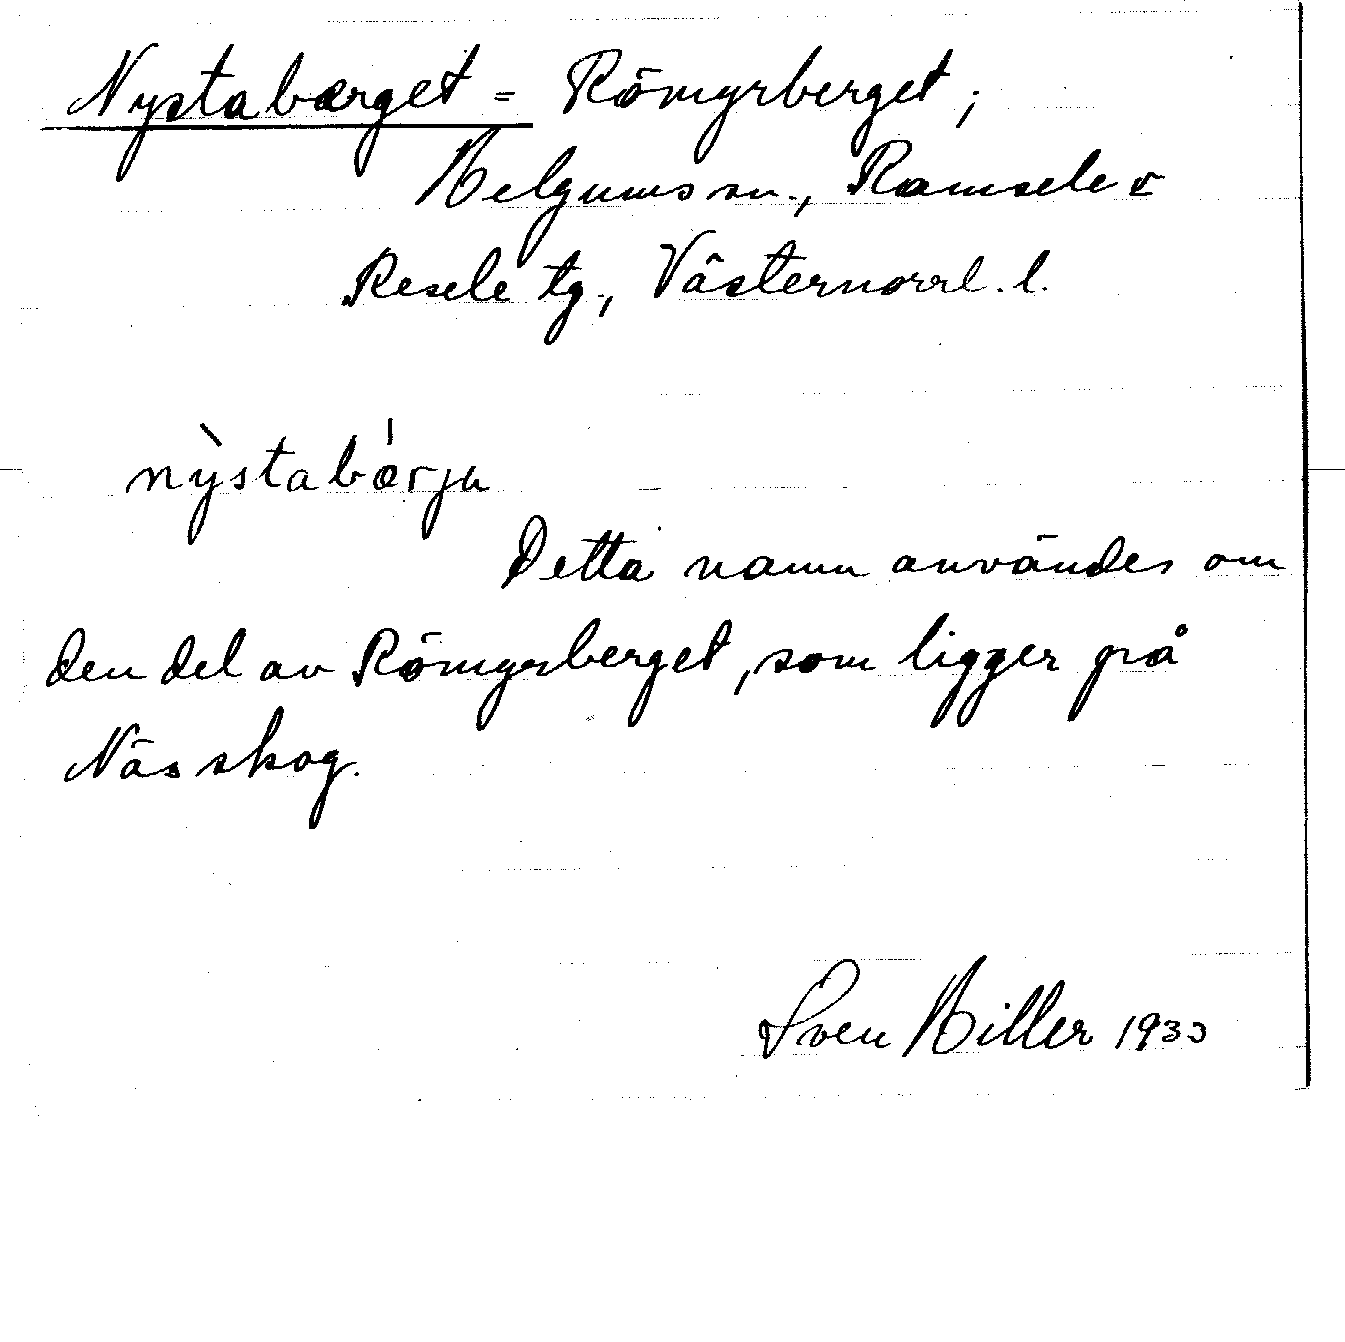 Nystaberget = Römyrberget;
Helgums sn., Ramsele o
Resele tg, Västernorrl. l.
nỳstabǽrja
Detta namn användes om
den del av Römyrberget, som ligger på
Näs skog.
Sven Hiller 1933